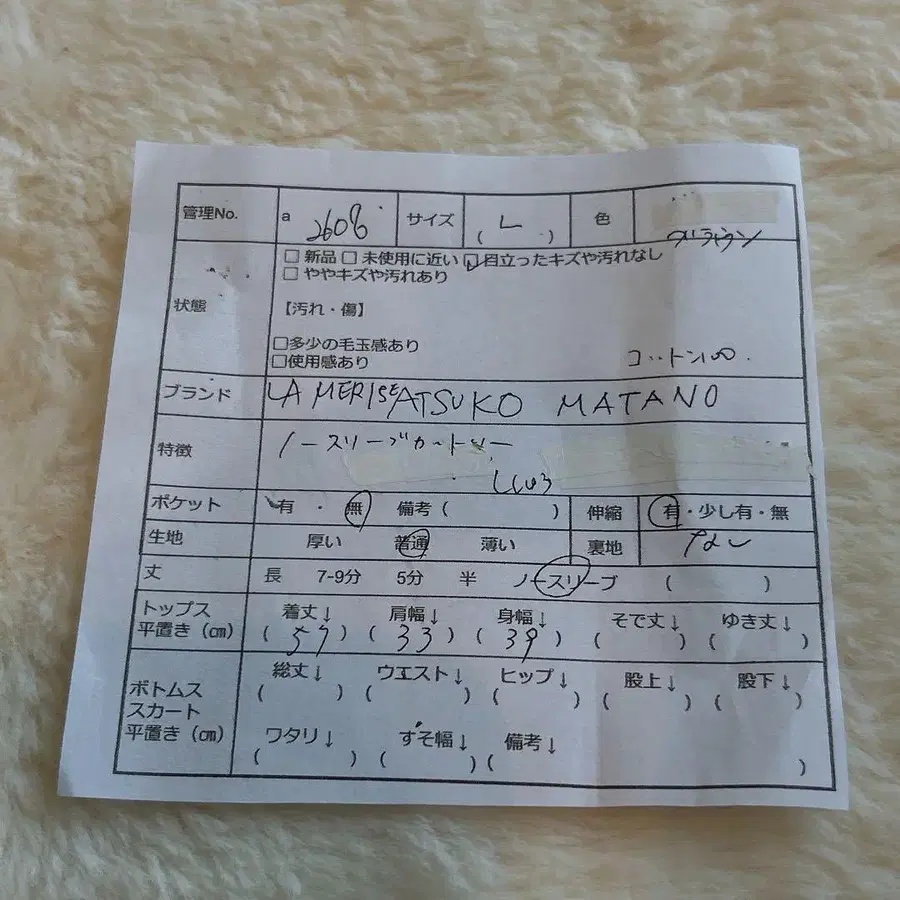 管理No. a 2608 サイズ ( L ) 色 ブラウン
状態 □ 新品 □ 未使用に近い ☑ 目立ったキズや汚れなし
□ ややキズや汚れあり
【汚れ・傷】
□多少の毛玉感あり
□使用感あり コットン100.
ブランド LA MERISE ATSUKO MATANO
特徴 ノースリーブカットソー
ししゅう
ポケット 有 ・ 無 備考 ( ) 伸縮 有・少し有・無
生地 厚い 普通 薄い 裏地 なし
丈 長 7-9分 5分 半 ノースリーブ ( )
トップス 平置き (cm) 着丈↓ ( 57 ) 肩幅↓ ( 33 ) 身幅↓ ( 39 ) そで丈↓ ( ) ゆき丈↓ ( )
ボトムス スカート 平置き (cm) 総丈↓ ( ) ウエスト↓ ( ) ヒップ↓ ( ) 股上↓ ( ) 股下↓ ( )
ワタリ↓ ( ) すそ幅↓ ( ) 備考↓ ( )